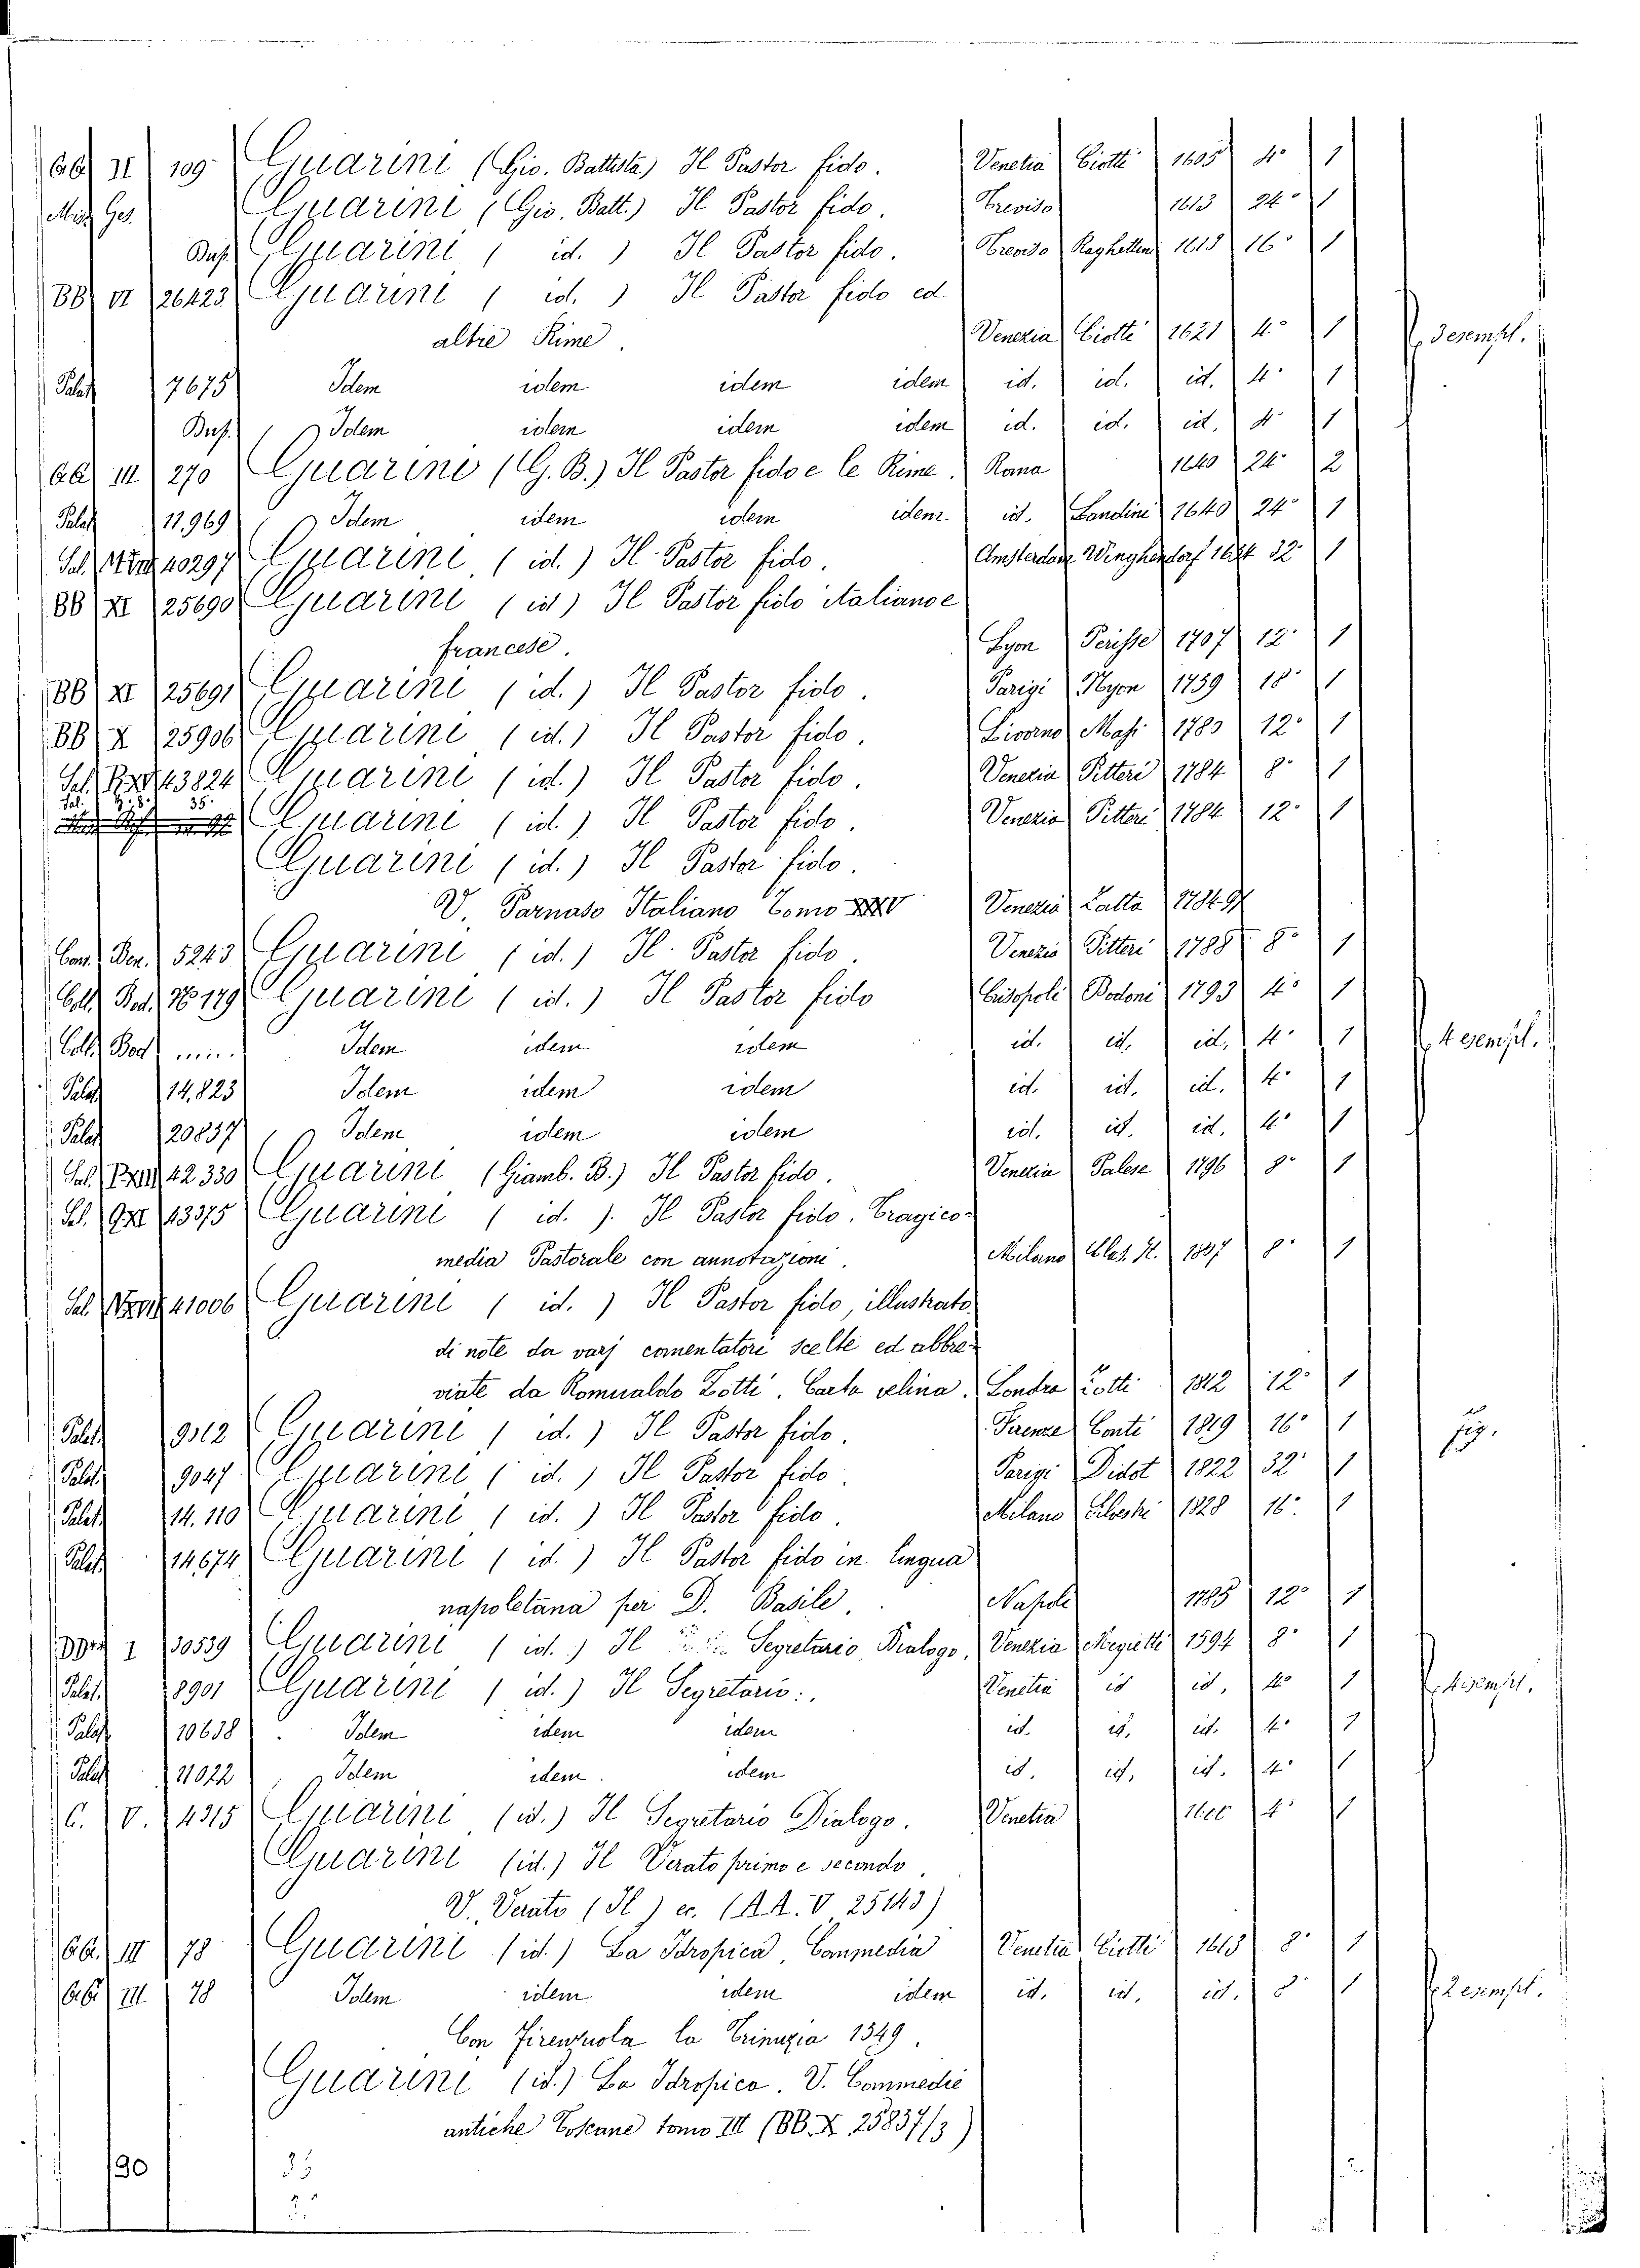 109 Guarini (Gio. Battista) Il Pastor fido. Venetia Ciotti 1605 4° 1
Guarini (Gio. Batt.) Il Pastor fido. Treviso 1613 24° 1
Guarini ( id. ) Il Pastor fido. Treviso Reghettini 1615 16° 1
BB VI 26423 Guarini ( id. ) Il Pastor fido ed
altre Rime. Venezia Ciotti 1621 4° 1 3 esempl.
Palat. 7675 Idem idem idem idem id. id. id. 4° 1
Idem idem idem idem id. id. id. 4° 1
III 270 Guarini (G. B.) Il Pastor fido e le Rime. Roma 1640 24° 2
Palat. 11,969 Idem idem idem idem id. Landini 1640 24° 1
40297 Guarini ( id. ) Il Pastor fido. Amsterdam 32° 1
BB XI 25690 Guarini ( id ) Il Pastor fido italiano e
francese. Lyon Perisse 1707 12° 1
BB XI 25691 Guarini ( id. ) Il Pastor fido. Parigi Nyon 1759 18° 1
BB X 25906 Guarini ( id. ) Il Pastor fido. Livorno Masi 1780 12° 1
43824 Guarini ( id. ) Il Pastor fido. Venezia Pitteri 1784 8° 1
Sal. 35. Guarini ( id. ) Il Pastor fido. Venezia Pitteri 1784 12° 1
Guarini ( id. ) Il Pastor fido.
V. Parnaso Italiano Tomo XXIV Venezia Zatta 1784-91
5243 Guarini ( id. ) Il Pastor fido. Venezia Pitteri 1788 8° 1
Coll. Bod. N° 179 Guarini ( id. ) Il Pastor fido Crisopoli Bodoni 1793 4° 1
Coll. Bod. Idem idem idem id. id. id. 4° 1 4 esempl.
Palat. 14,823 Idem idem idem id. id. id. 4° 1
Palat. 20837 Idem idem idem id. id. id. 4° 1
42330 Guarini (Giamb. B.) Il Pastor fido. Venezia Palese 1796 8° 1
43375 Guarini ( id. ). Il Pastor fido. Tragico-
media Pastorale con annotazioni. Milano Clas. It. 1807 8° 1
41006 Guarini ( id. ) Il Pastor fido, illustrato
di note da varj comentatori scelte ed abbre-
viate da Romualdo Zotti. Carta velina. Londra Zotti 1812 12° 1
Palat. 9312 Guarini ( id. ) Il Pastor fido. Firenze Conti 1819 16° 1 fig.
Palat. 9047 Guarini ( id. ) Il Pastor fido. Parigi Didot 1822 32° 1
Palat. 14.110 Guarini ( id. ) Il Pastor fido. Milano Silvestri 1828 16° 1
Palat. 14674 Guarini ( id. ) Il Pastor fido in lingua
napoletana per D. Basile. Napoli 1785 12° 1
30539 Guarini ( id. ) Il Segretario Dialogo. Venezia Megietti 1594 8° 1
Palat. 8901 Guarini ( id. ) Il Segretario. Venetia id id. 4° 1 4 esempl.
Palat. 10638 Idem idem idem id. id. id. 4° 1
Palat. 11022 Idem idem idem id. id. id. 4° 1
C. V. 4315 Guarini (id.) Il Segretario Dialogo. Venetia 1600 4° 1
Guarini (id.) Il Verato primo e secondo.
V. Verato (Il) ec. (AA. V 25143)
III 78 Guarini (id.) La Idropica, Commedia Venetia Ciotti 1613 8° 1
III 78 Idem idem idem idem id. id. id. 8° 1 2 esempl.
Con Firenzuola la Trinuzia 1549.
Guarini (id.) La Idropica. V. Commedie
antiche Toscane tomo III (BB. X 25837/3)
190